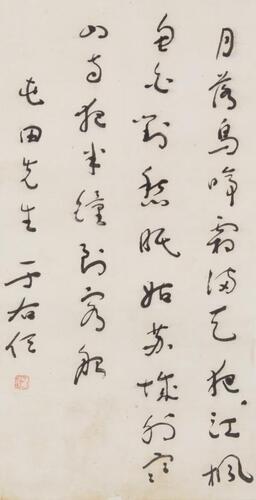 月落烏啼霜滿天夜江楓
魚火對愁眠姑蘇城外寒
山寺夜半鐘到客船
屯田先生 于右任